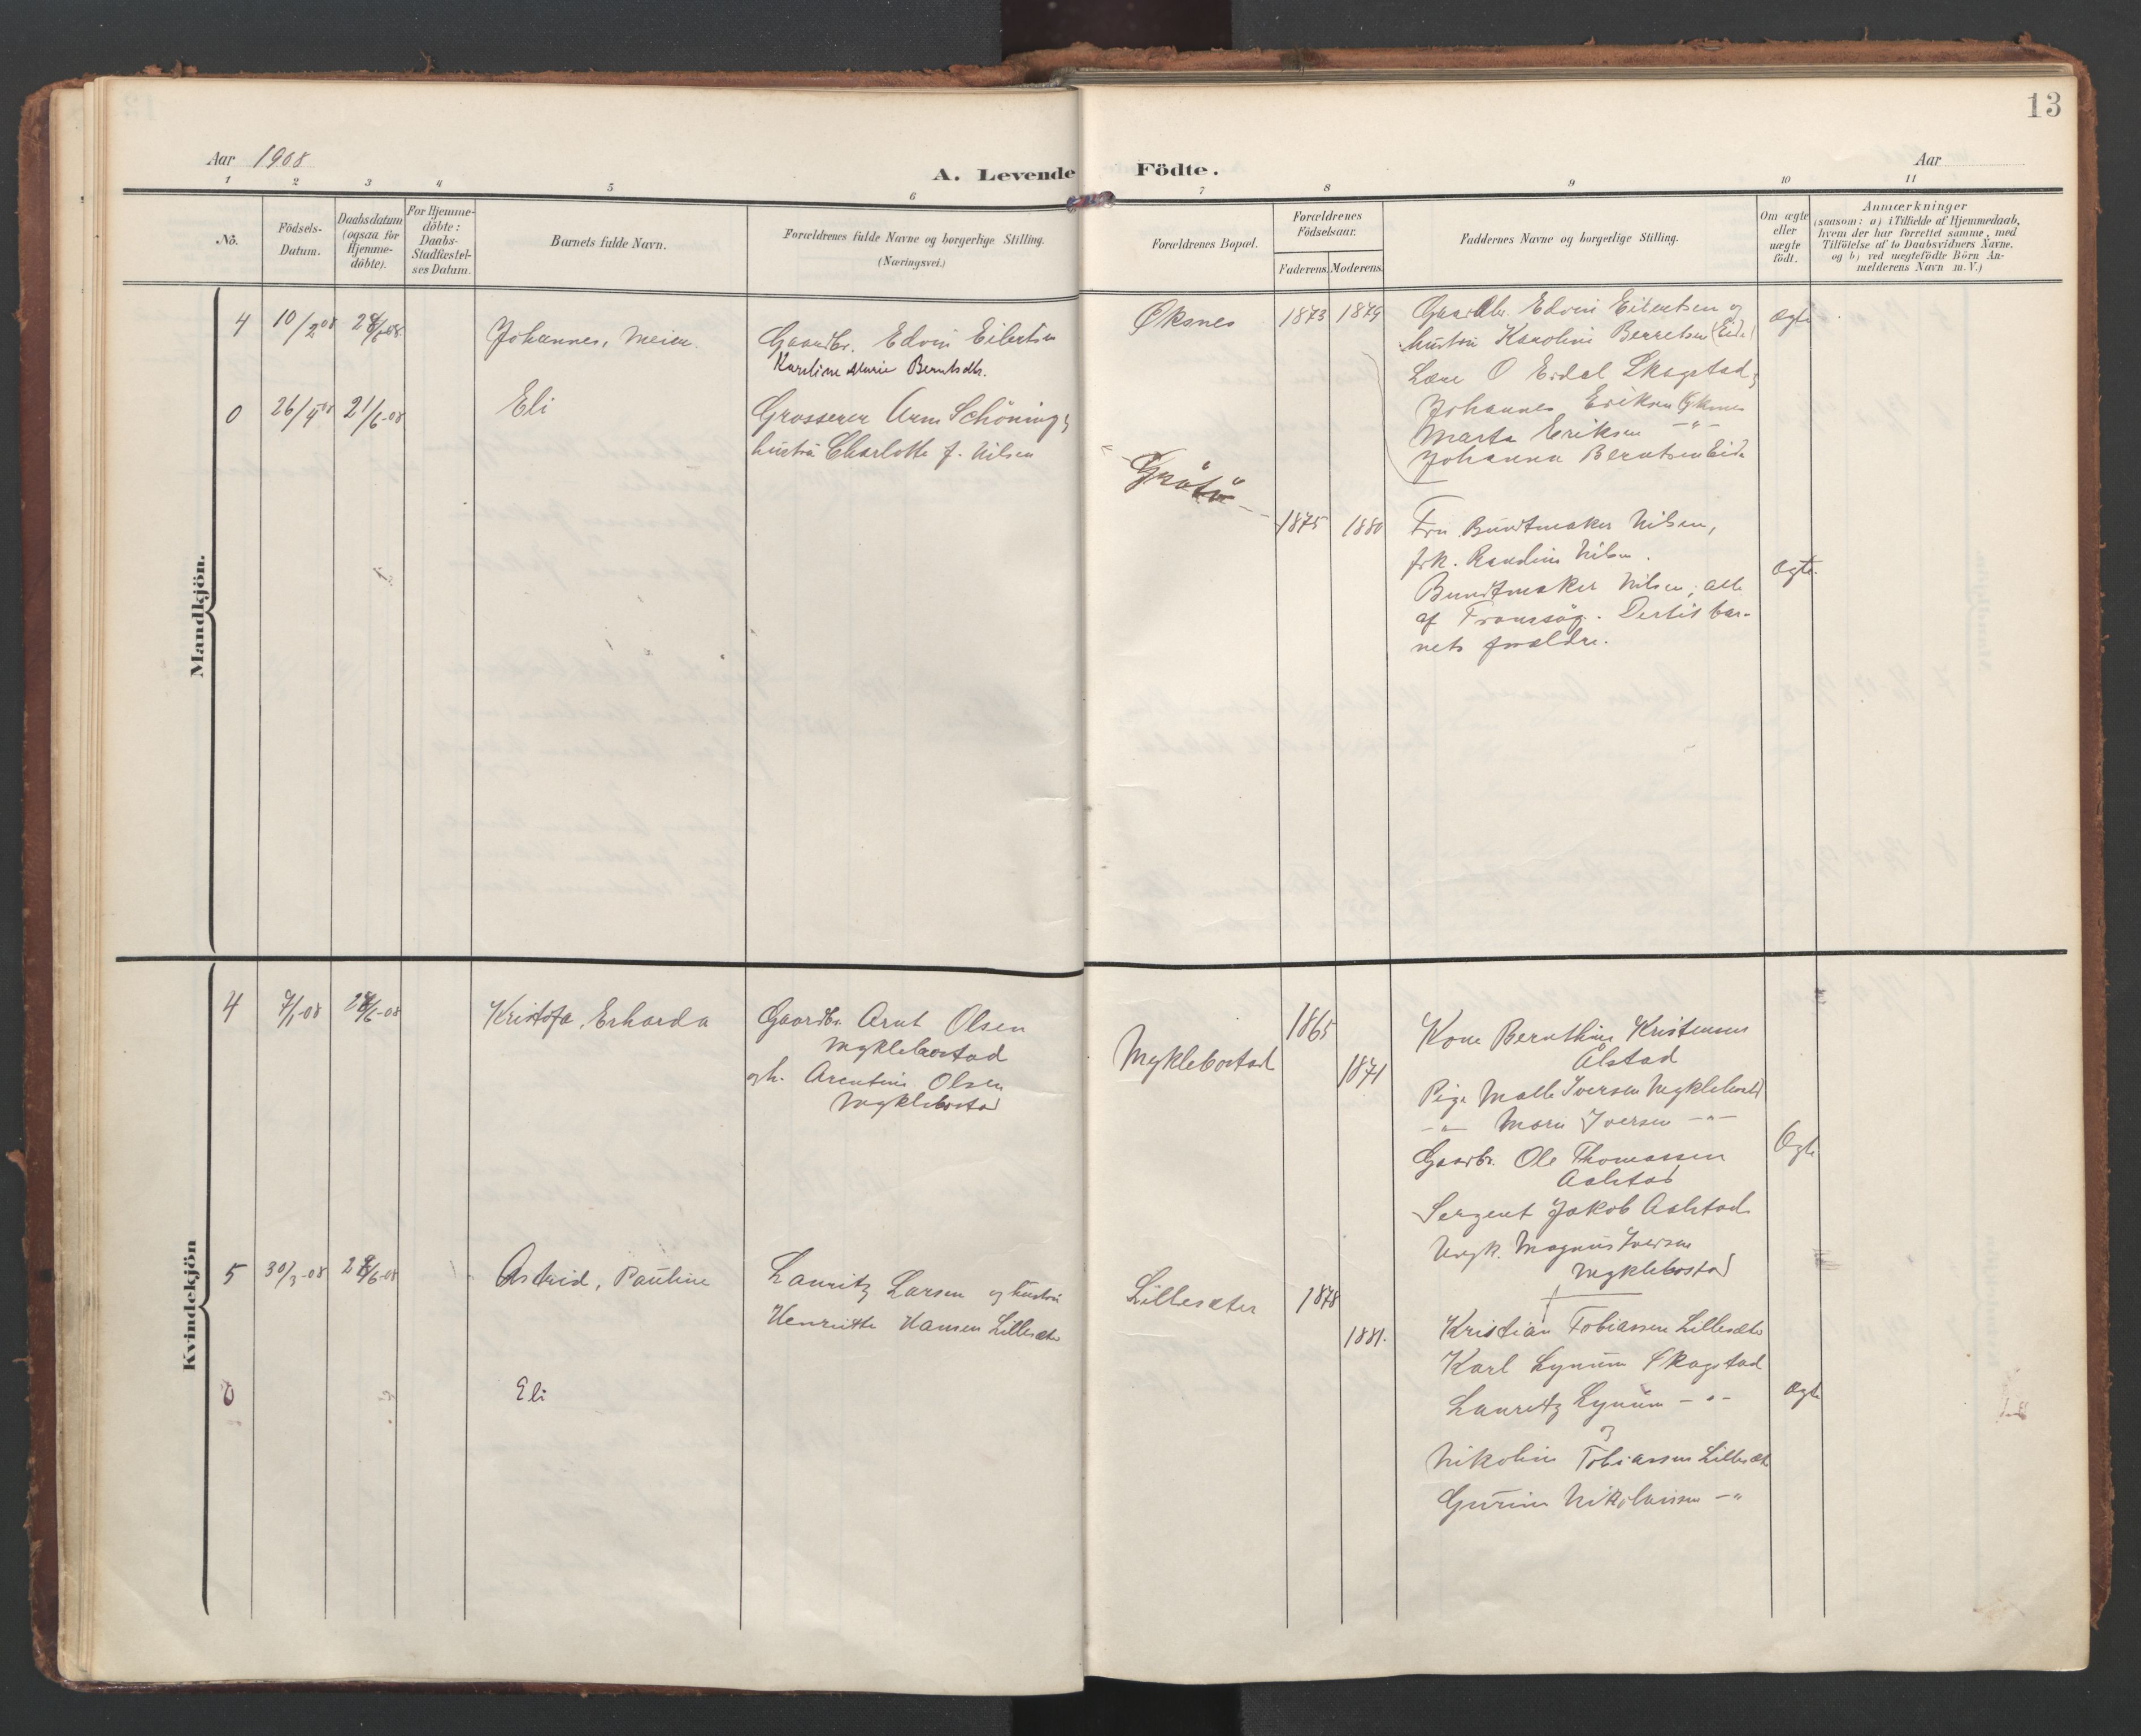 13
Aar 1908
A. Levende Födte.
Aar
1 2 3 4 5 6 7 8 9 10 11
No.
Födsels-Datum.
Daabsdatum (ogsaa for Hjemmedöbte).
For Hjemmedöbte: Daabs-Stadfæstelses Datum.
Barnets fulde Navn.
Forældrenes fulde Navne og borgerlige Stilling.
(Næringsvei.)
Forældrenes Bopæl.
Forældrenes Födselsaar.
Faderens. Moderens.
Faddernes Navne og borgerlige Stilling.
Om ægte eller uægte födt.
Anmærkninger
(saasom: a) i Tilfælde af Hjemmedaab,
hvem der har forrettet samme, med
Tilföielse af to Daabsvidners Navne.
og b) ved uægtefödte Börn An-
melderens Navn m.V.)
Mandkjön.
4 10/2 08 Johannes, Meier.
Gaardbr. Edvin Eilertsen
Karoline Marie Berntsdtr.
Øksnes 1873 1879
Gaardbr. Edvin Eilertsen og
hustru Karoline Berntsen (Eide)
Lære O Eidal Skagstad,
Johannes Eriksen Øksnes
Marta Eriksen -"-
Johanna Berntsen Eide
ægte
0 26/4 08 21/6-08 Eli
Grosserer Arm Schöning,
hustru Charlotte f. Nilsen
Grötö
1875 1880
Fru Buntmaker Nilsen,
frk. Randine Nilsen.
Buntmaker Nilsen, alle
af Tromsøg. Dertil bar-
nets forældre.
ægte.
Kvindekjön
4 9/1-08 Kristofa, Erharda
Gaardbr. Arnt Olsen
Myklebostad
og h. Arentine Olsen
Myklebostad
Myklebostad 1865
1871
Kone Bernthine Kristensen
Ålstad
Pige Malle Iversen Myklebostad
-"- Marie Iversen -"-
Gaardbr. Ole Thomassen
Aalstad
Sergent Jakob Aalstad
Ungk. Magnus Iversen
Myklebostad
Ægte
5 30/3-08 Astrid, Pauline
Lauritz Larsen og hustru
Henriette Hansen Lillesæter
Lillesæter 1878
1881.
Kristian Tobiassen Lillesæter
Karl Lynum Skagstad
Lauritz Lynum -"-
og
Nikoline Tobiassen Lillesæter
Gurine Nikolaisen -"
Ægte
0 Eli